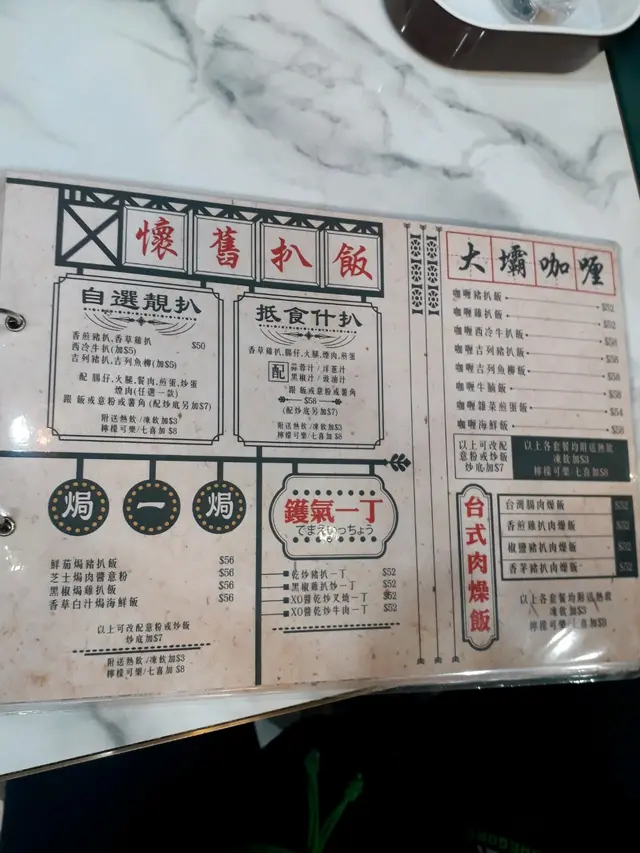 懷舊扒飯
自選靚扒
香煎豬扒,香草雞扒 $50
西冷牛扒(加$5)
吉列豬扒,吉列魚柳(加$5)
配 腸仔,火腿,餐肉,煎蛋,炒蛋
煙肉(任選一款)
跟 飯或意粉或薯角 (配炒底另加$7)
附送熱飲/凍飲加$3
檸檬可樂/七喜加 $8
抵食什扒
香草雞扒,腸仔,火腿,煙肉,煎蛋
配 蒜蓉汁/洋蔥汁
黑椒汁/豉油汁
跟 飯或意粉或薯角
$58
(配炒底另加$7)
附送熱飲/凍飲加$3
檸檬可樂/七喜加 $8
焗一焗
鮮茄焗豬扒飯 $56
芝士焗肉醬意粉 $56
黑椒焗雞扒飯 $56
香草白汁焗海鮮飯 $56
以上可改配意粉或炒飯
炒底加$7
附送熱飲/凍飲加$3
檸檬可樂/七喜加 $8
鑊氣一丁
でまえいっちょう
乾炒豬扒一丁 $52
黑椒雞扒炒一丁 $52
XO醬乾炒叉燒一丁 $52
XO醬乾炒牛肉一丁 $52
大壩咖喱
咖喱豬扒飯 $52
咖喱雞扒飯 $52
咖喱西冷牛扒飯 $58
咖喱吉列豬扒飯 $58
咖喱吉列魚柳飯 $58
咖喱牛腩飯 $58
咖喱雜菜煎蛋飯 $54
咖喱海鮮飯 $58
以上可改配
意粉或炒飯
炒底加$7
以上各套餐均附送熱飲
凍飲加$3
檸檬可樂/七喜加 $8
台式肉燥飯
台灣腸肉燥飯 $52
香煎雞扒肉燥飯 $52
椒鹽豬扒肉燥飯 $52
香茅豬扒肉燥飯 $52
以上各套餐均附送熱飲
凍飲加$3
檸檬可樂/七喜加 $8